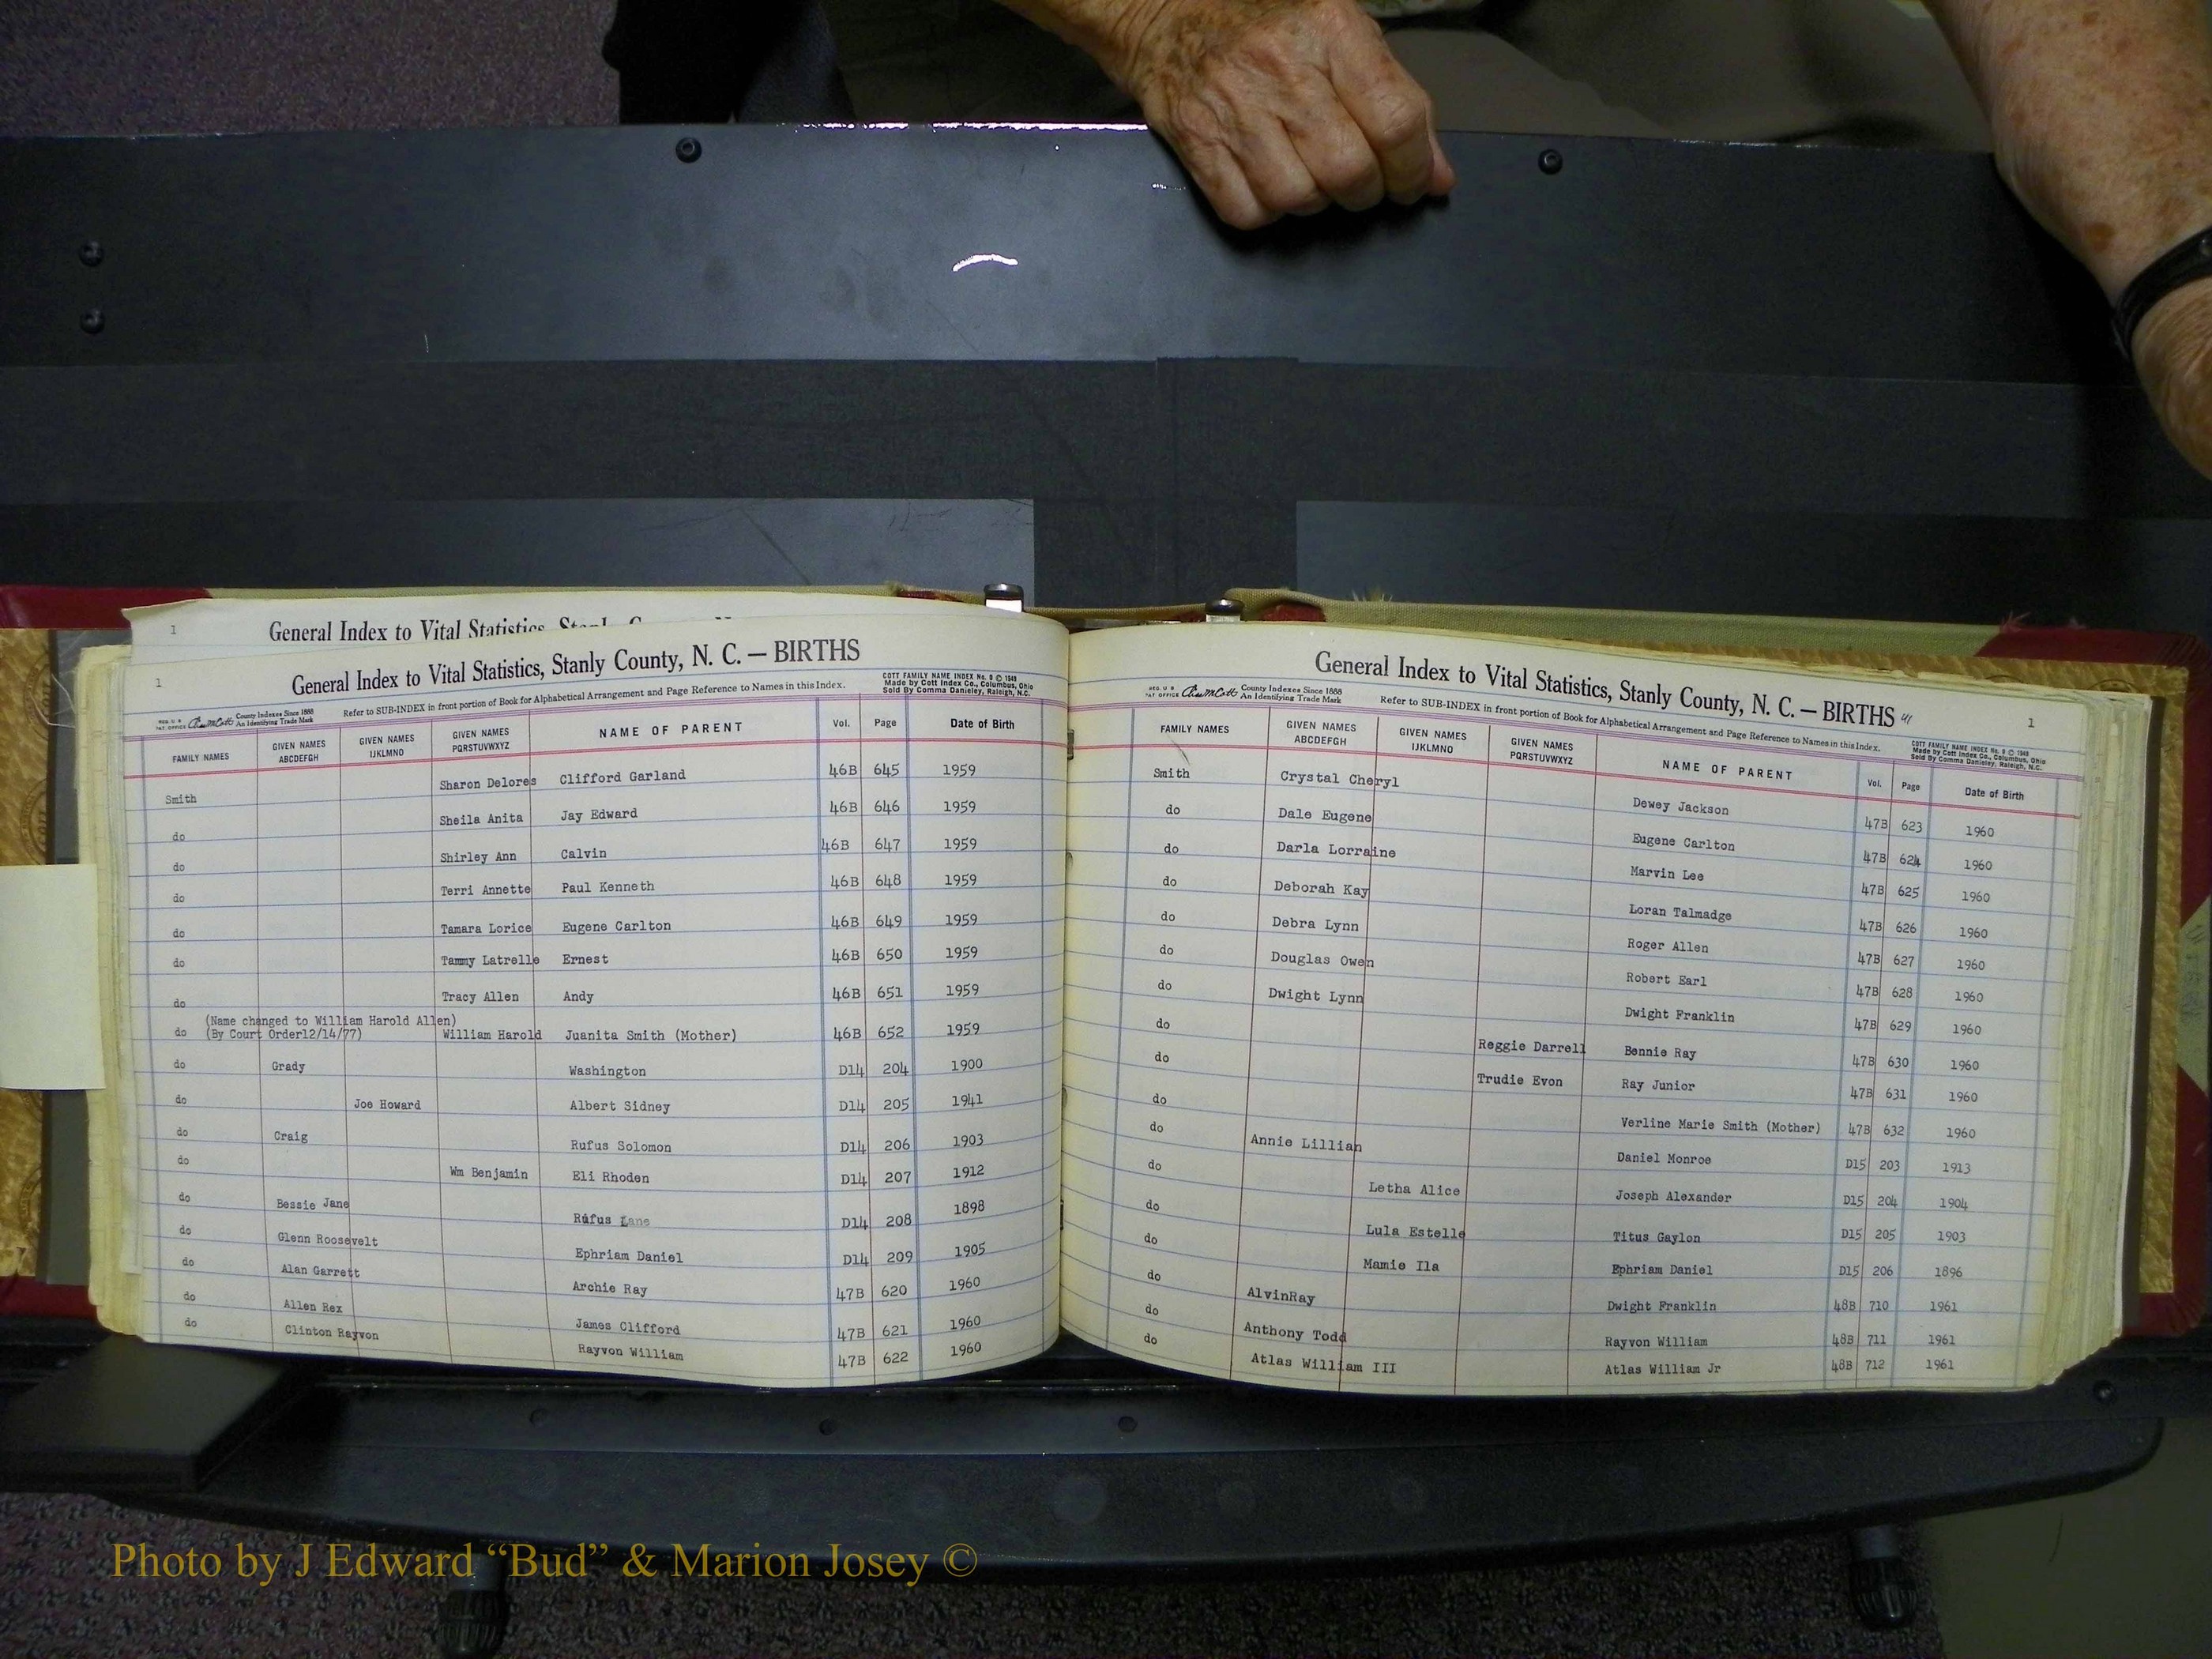 1 General Index to Vital Statistics, Stanly County, N.
1 General Index to Vital Statistics, Stanly County, N. C. — BIRTHS
REG. U S PAT. OFFICE County Indexes Since 1888 An Identifying Trade Mark Refer to SUB-INDEX in front portion of Book for Alphabetical Arrangement and Page Reference to Names in this Index. COTT FAMILY NAME INDEX No. 9 © 1949 Made by Cott Index Co., Columbus, Ohio Sold By Comma Danieley, Raleigh, N.C.
FAMILY NAMES GIVEN NAMES ABCDEFGH GIVEN NAMES IJKLMNO GIVEN NAMES PQRSTUVWXYZ NAME OF PARENT Vol. Page Date of Birth
Smith Sharon Delores Clifford Garland 46B 645 1959
do Sheila Anita Jay Edward 46B 646 1959
do Shirley Ann Calvin 46B 647 1959
do Terri Annette Paul Kenneth 46B 648 1959
do Tamara Lorice Eugene Carlton 46B 649 1959
do Tammy Latrelle Ernest 46B 650 1959
do Tracy Allen Andy 46B 651 1959
(Name changed to William Harold Allen)
do (By Court Order12/14/77) William Harold Juanita Smith (Mother) 46B 652 1959
do Grady Washington D14 204 1900
do Joe Howard Albert Sidney D14 205 1941
do Craig Rufus Solomon D14 206 1903
do Wm Benjamin Eli Rhoden D14 207 1912
do Bessie Jane Rufus Lane D14 208 1898
do Glenn Roosevelt Ephriam Daniel D14 209 1905
do Alan Garrett Archie Ray 47B 620 1960
do Allen Rex James Clifford 47B 621 1960
do Clinton Rayvon Rayvon William 47B 622 1960
General Index to Vital Statistics, Stanly County, N. C. — BIRTHS 1
REG. U S PAT. OFFICE County Indexes Since 1888 An Identifying Trade Mark Refer to SUB-INDEX in front portion of Book for Alphabetical Arrangement and Page Reference to Names in this Index. COTT FAMILY NAME INDEX No. 9 © 1949 Made by Cott Index Co., Columbus, Ohio Sold By Comma Danieley, Raleigh, N.C.
FAMILY NAMES GIVEN NAMES ABCDEFGH GIVEN NAMES IJKLMNO GIVEN NAMES PQRSTUVWXYZ NAME OF PARENT Vol. Page Date of Birth
Smith Crystal Cheryl Dewey Jackson 47B 623 1960
do Dale Eugene Eugene Carlton 47B 624 1960
do Darla Lorraine Marvin Lee 47B 625 1960
do Deborah Kay Loran Talmadge 47B 626 1960
do Debra Lynn Roger Allen 47B 627 1960
do Douglas Owen Robert Earl 47B 628 1960
do Dwight Lynn Dwight Franklin 47B 629 1960
do Reggie Darrell Bennie Ray 47B 630 1960
do Trudie Evon Ray Junior 47B 631 1960
do Verline Marie Smith (Mother) 47B 632 1960
do Annie Lillian Daniel Monroe D15 203 1913
do Letha Alice Joseph Alexander D15 204 1904
do Lula Estelle Titus Gaylon D15 205 1903
do Mamie Ila Ephriam Daniel D15 206 1896
do AlvinRay Dwight Franklin 48B 710 1961
do Anthony Todd Rayvon William 48B 711 1961
do Atlas William III Atlas William Jr 48B 712 1961
Photo by J Edward “Bud” & Marion Josey ©